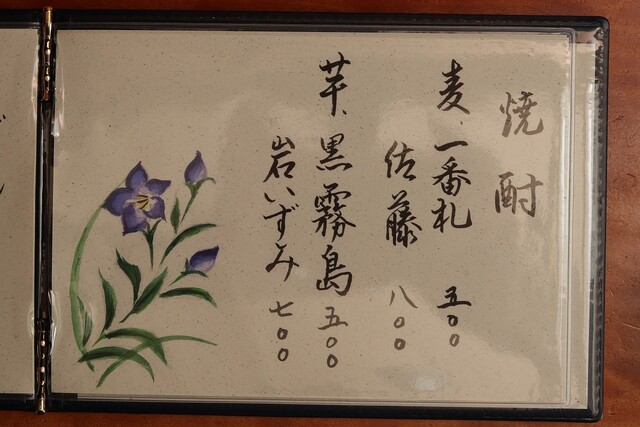 焼酎
麦、一番札 五〇〇
佐藤 八〇〇
芋、黒霧島 五〇〇
岩いずみ 七〇〇